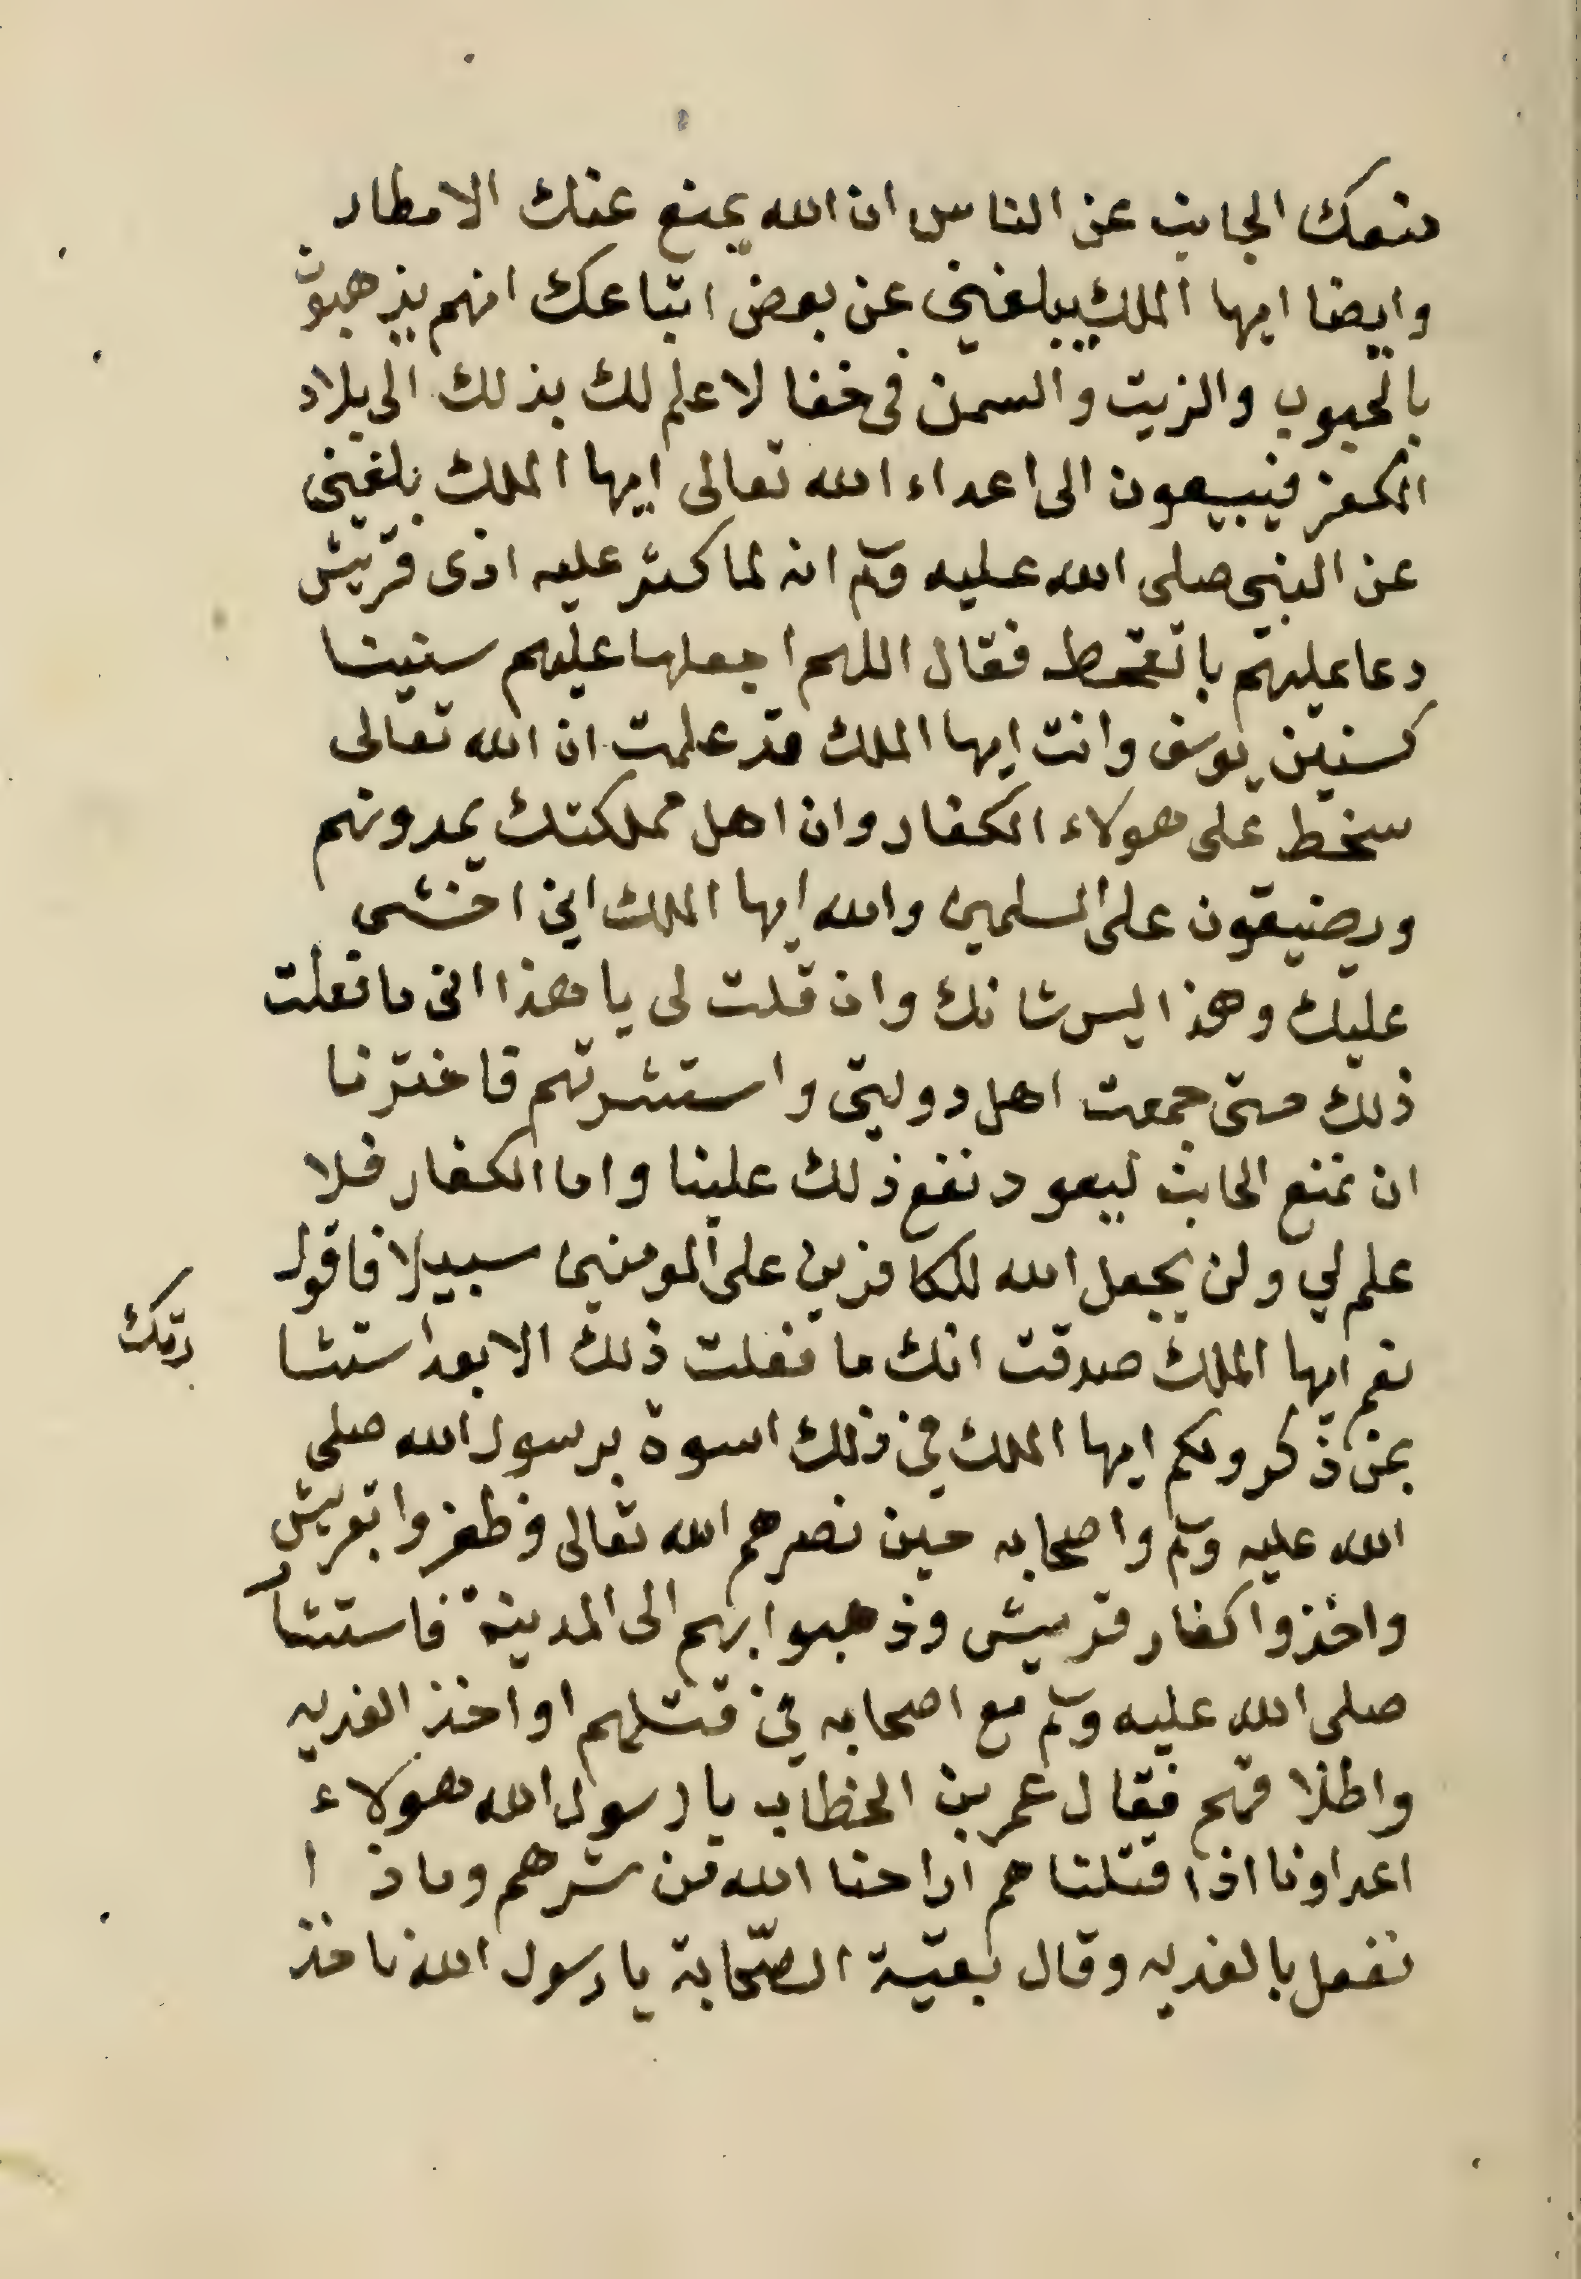 منعك الجانب عن الناس ان الله يمنع عنك الامطار
وايضا ايها الملك يبلغني عن بعض اتباعك انهم يذهبون
بالحبوب والزيت والسمن في خفا لا علم لك بذلك الى بلاد
الكفر فيبيعون الى اعداء الله تعالى ايها الملك بلغني
عن النبي صلى الله عليه وسلم انه لما كثر عليه اذى قريش
دعا عليهم بالقحط فقال اللهم اجعلها عليهم سنينا
كسنين يوسف وانت ايها الملك قد علمت ان الله تعالى
سخط على هولاء الكفار وان اهل مملكتك يمدونهم
ويضيقون على المسلمين والله ايها الملك اني اخشى
عليك وهذا ليس شانك وان قلت لى يا هذا انى ما فعلت
ذلك حتى جمعت اهل دولتى واستشرتهم فاخترنا
ان نمنع الجانب ليعود نفع ذلك علينا واما الكفار فلا
علم لي ولن يجعل الله للكافرين على المومنين سبيلا فاقول
نعم ايها الملك صدقت انك ما فعلت ذلك الا بعد استشا
رتك
بمن ذكر ولكم ايها الملك في ذلك اسوة برسول الله صلى
الله عليه وسلم واصحابه حين نصرهم الله تعالى وظفروا بقريش
واخذوا كفار قريش وذهبوا بهم الى المدينة فاستشار
صلى الله عليه وسلم مع اصحابه في قتلهم او اخذ الفديه
واطلاقهم فقال عمر بن الخطاب يا رسول الله هولاء
اعداونا اذا قتلناهم اراحنا الله من شرهم وماذا
نفعل بالفديه وقال بقية الصحابة يا رسول الله ناخذ